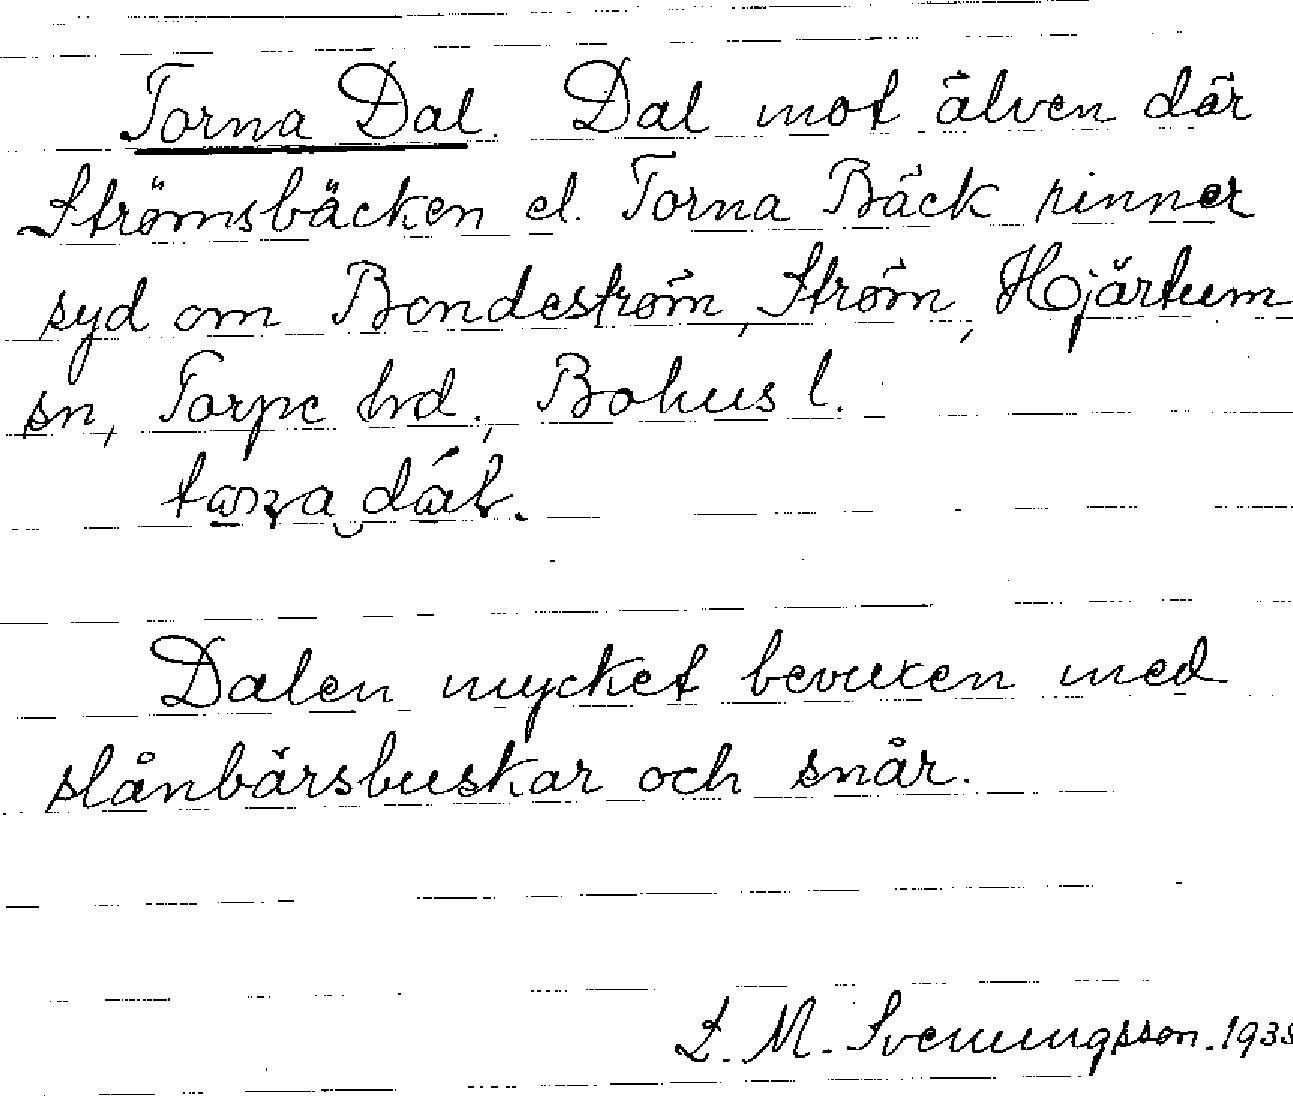 Torna Dal. Dal mot älven där
Strömsbäcken el. Torna Bäck rinner
syd om Bondeström, Ström, Hjärtum
sn, Torpe hd., Bohus l.
Dalen mycket bevuxen med
slånbärsbuskar och snår.
L. M. Svenungsson.